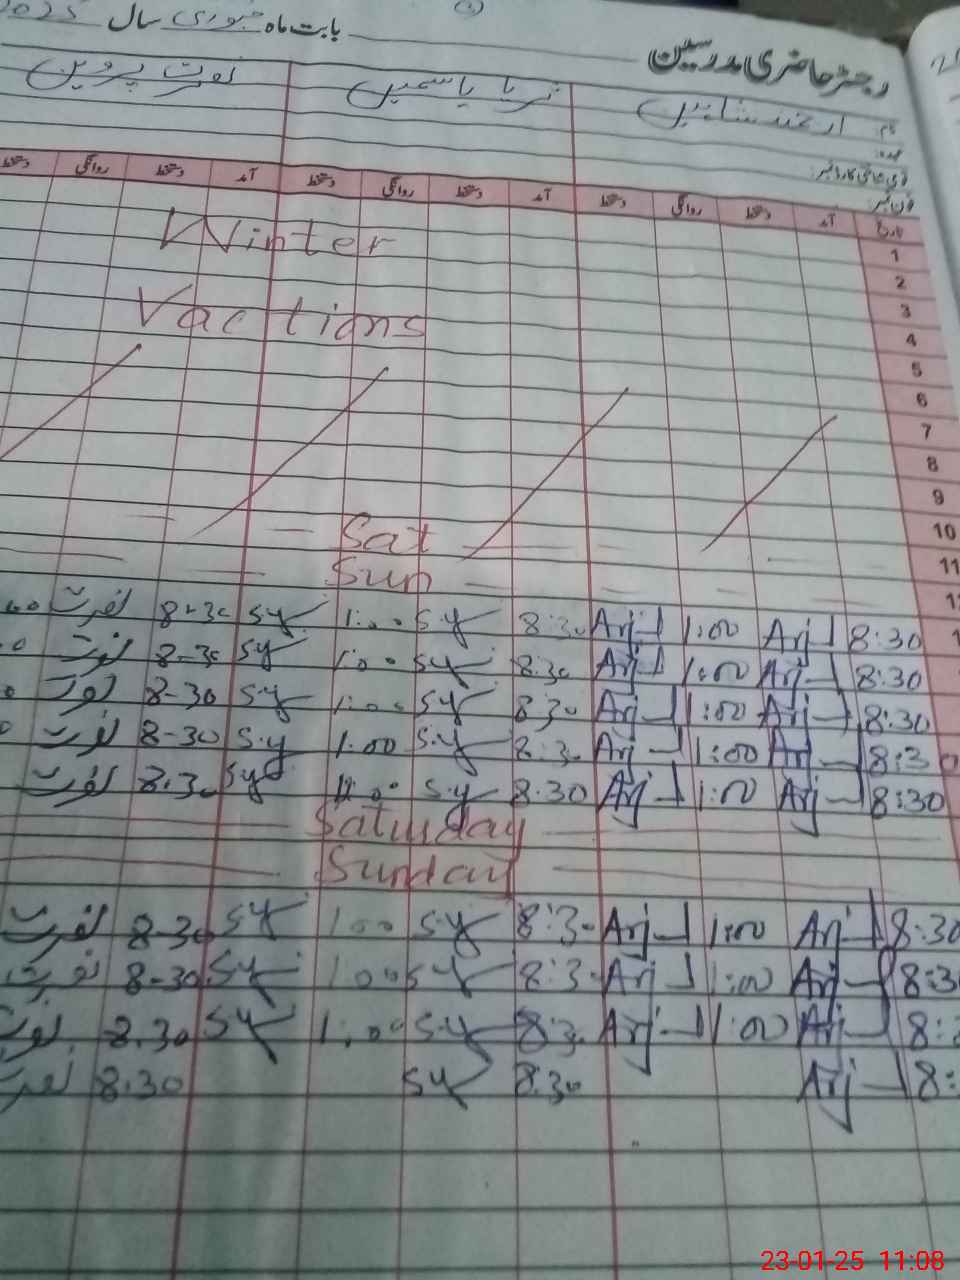 رجسٹر حاضری مدرسین بابت ماہ جنوری سال 2025
نام ارجمند شاہین ثریا یاسمین نصرت پروین
عہدہ:
قومی شناختی کارڈ نمبر:
فون نمبر:
تاریخ آمد دستخط روانگی دستخط آمد دستخط روانگی دستخط آمد دستخط روانگی دستخط
1 Winter
2
3 Vactions
4
5
6
7
8
9
10
11 Sat
Sun
8:30 Arj 1:00 Arj 8:30 S.Y 1:00 S.Y 8-30 نصرت
8:30 Arj 1:00 Arj 8:30 S.Y 1:00 S.Y 8-30 نصرت
8:30 Arj 1:00 Arj 8:30 S.Y 1:00 S.Y 8-30 نصرت
8:30 Arj 1:00 Arj 8:30 S.Y 1:00 S.Y 8-30 نصرت
8:30 Arj 1:00 Arj 8.30 S.Y 12:00 S.Y 8.30 نصرت
Saturday
Sunday
8:30 Arj 1:00 Arj 8:30 S.Y 1:00 S.Y 8-30 نصرت
8:30 Arj 1:00 Arj 8:30 S.Y 1:00 S.Y 8-30 نصرت
Arj 1:00 Arj 8:30 S.Y 1:00 S.Y 8.30 نصرت
Arj 8.30 S.Y 8.30 نصرت
23-01-25 11:08